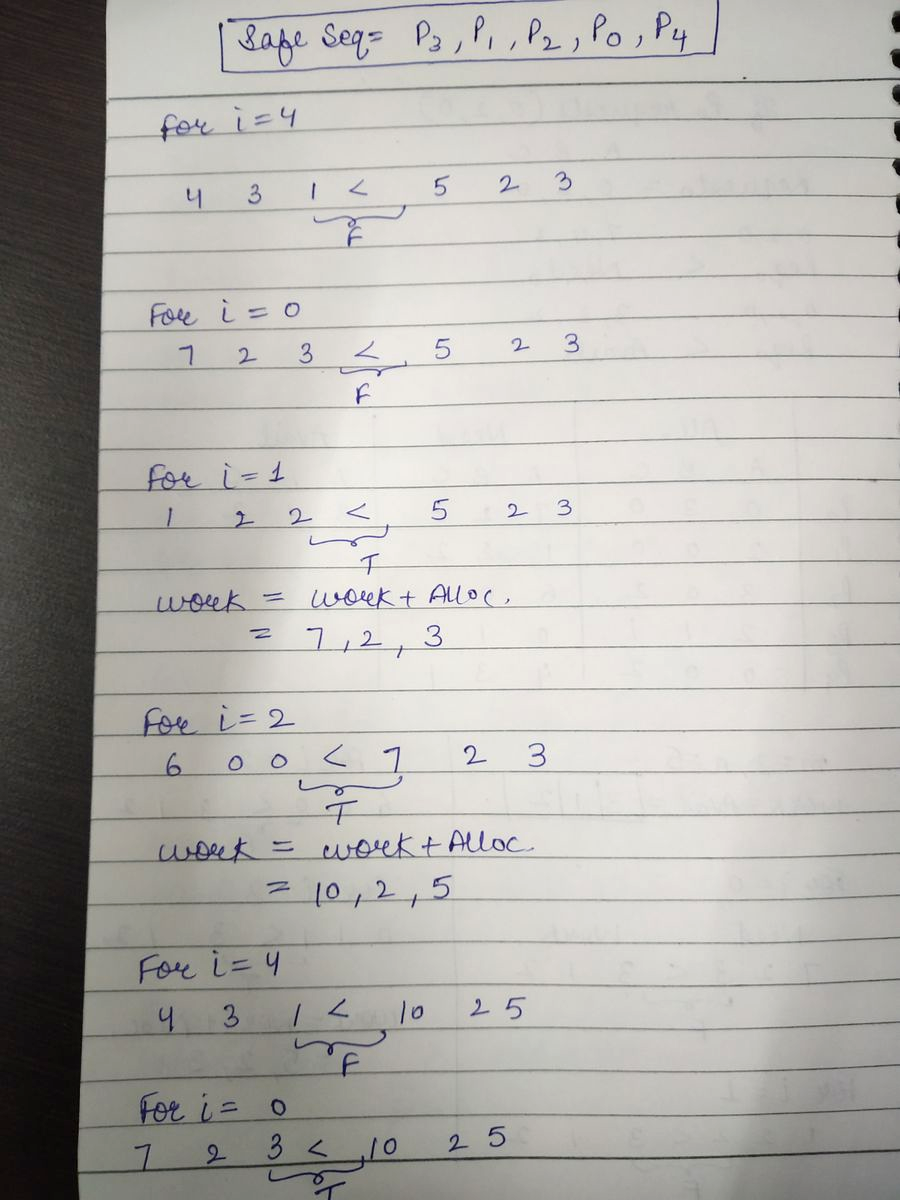 Safe Seq= P3, P1, P2, P0, P4
For i=4
4 3 1 < 5 2 3
F
For i = 0
7 2 3 < 5 2 3
F
For i=1
1 2 2 < 5 2 3
T
work = work+Alloc.
= 7,2,3
For i=2
6 0 0 < 7 2 3
T
work = work+Alloc.
= 10,2,5
For i=4
4 3 1 < 10 2 5
F
For i= 0
7 2 3 < 10 2 5
T